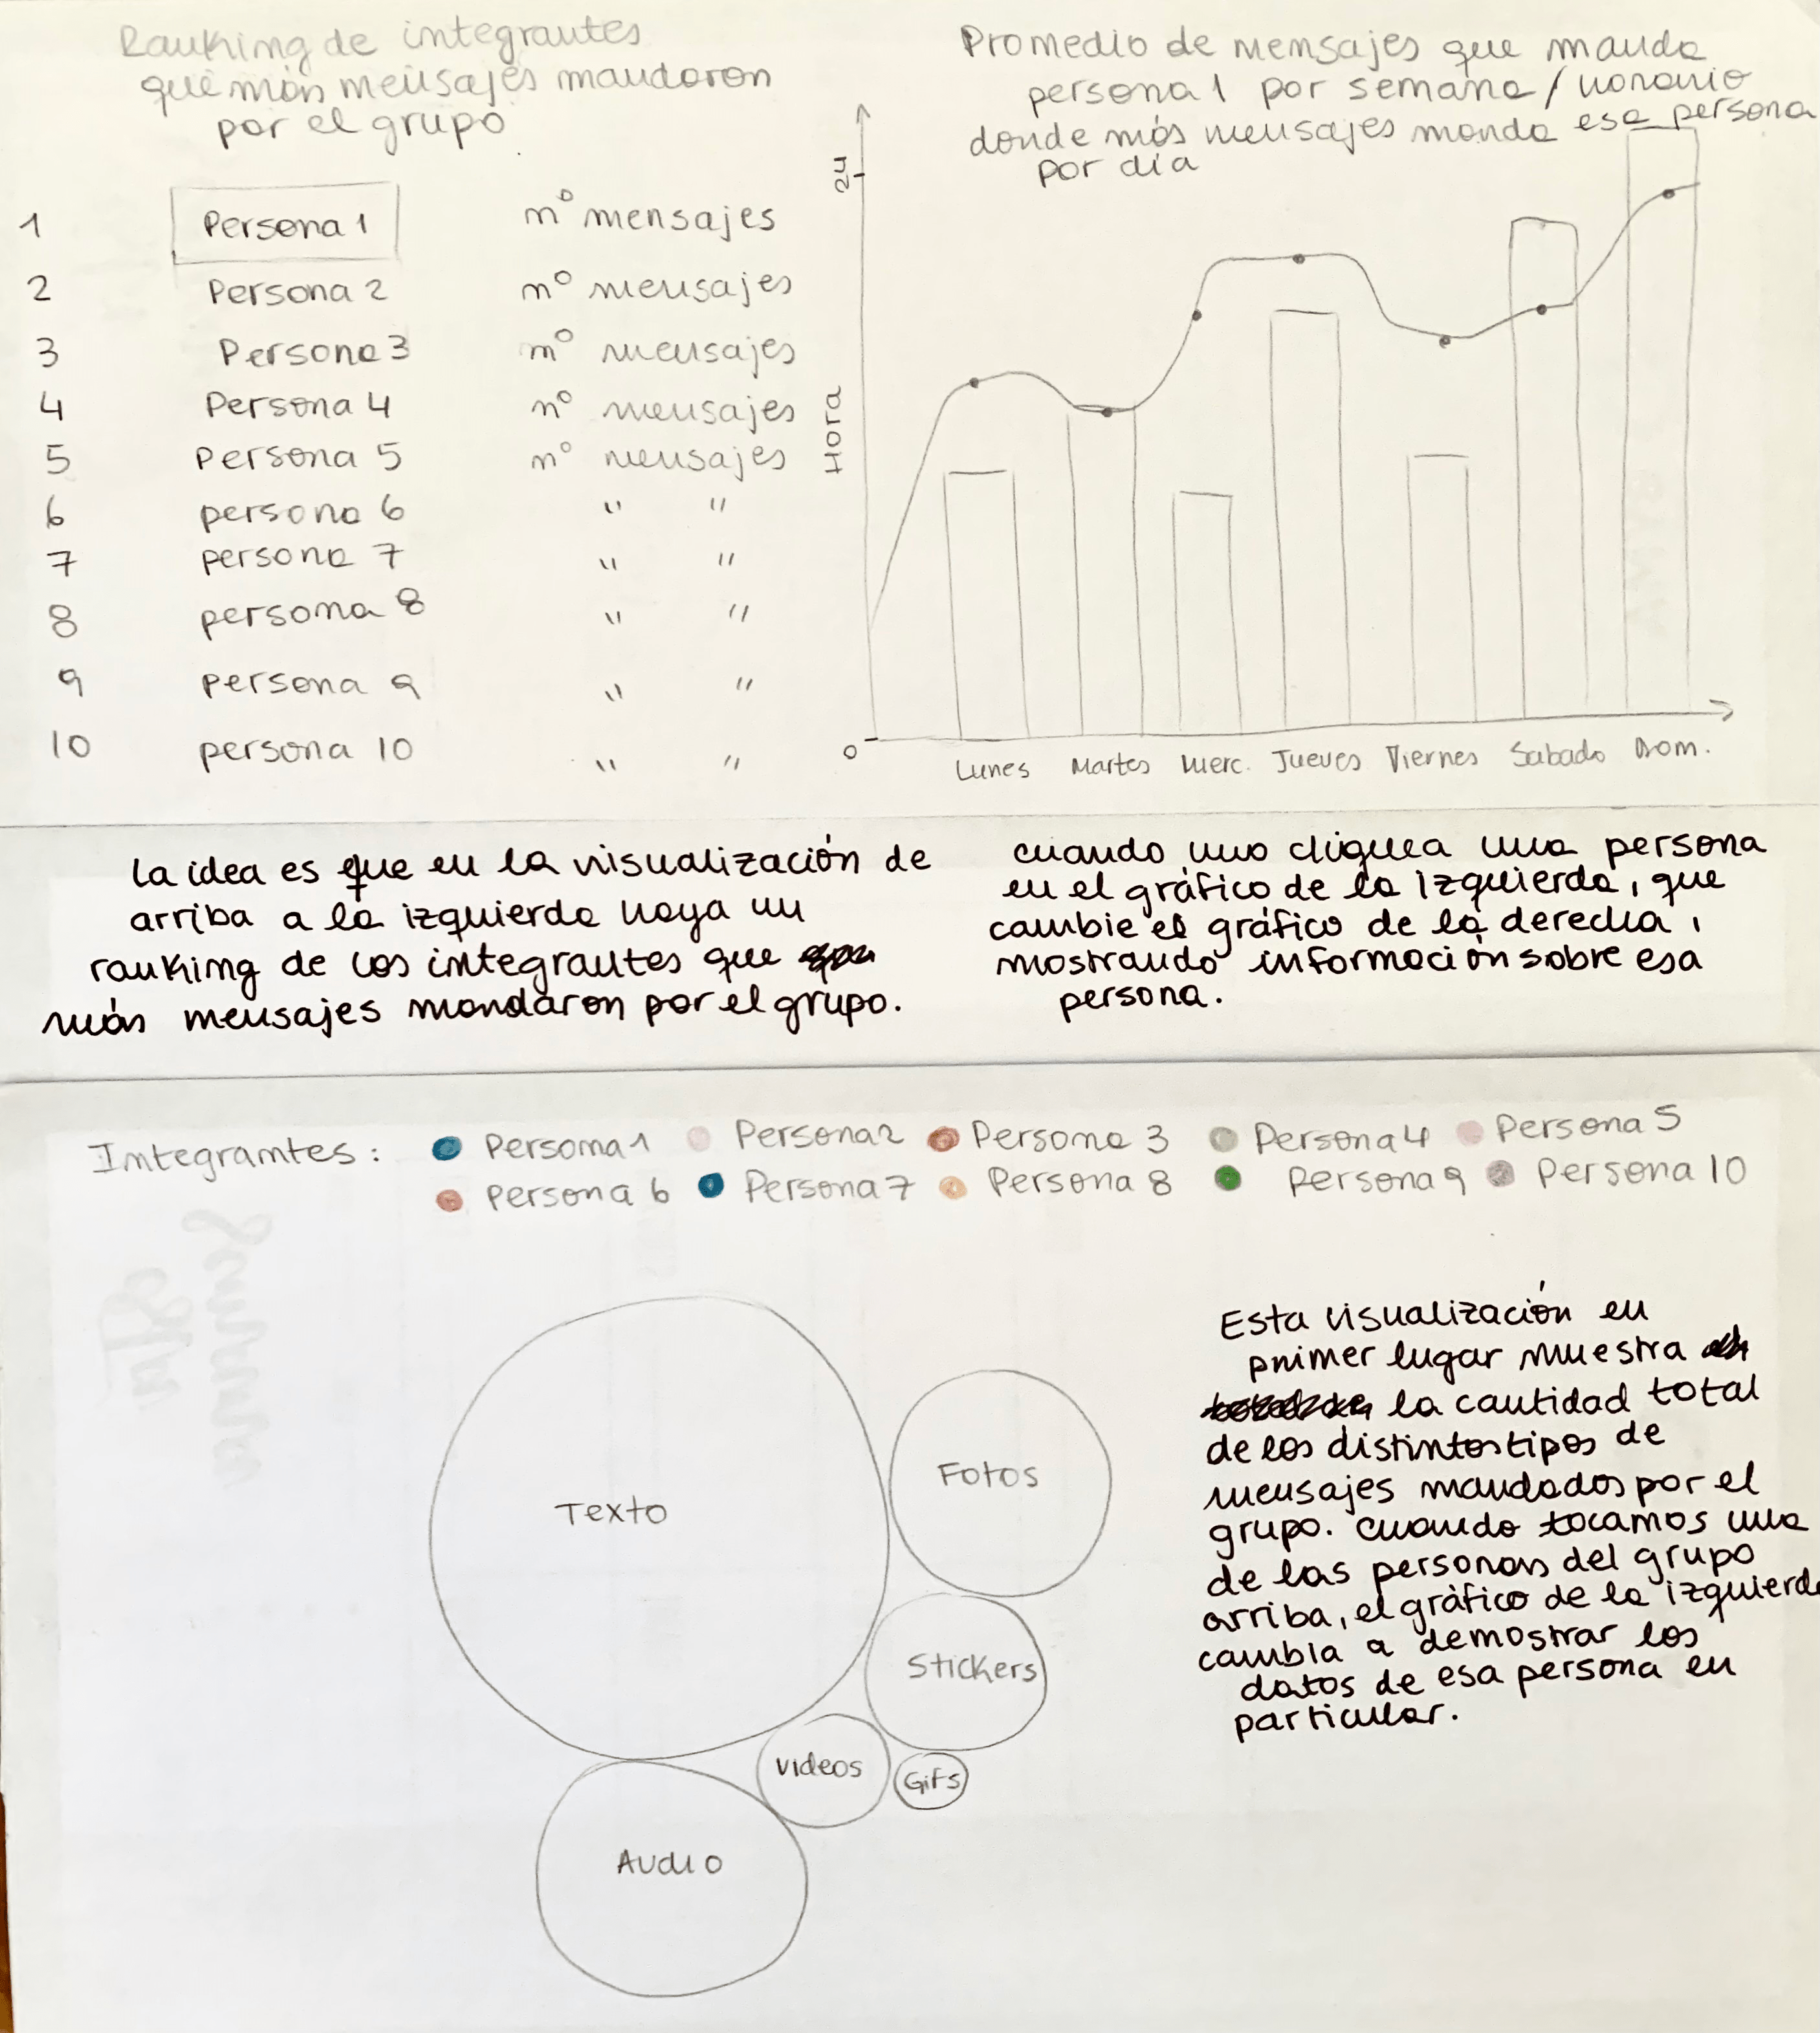 Ranking de integrantes
que más mensajes mandaron
por el grupo
1 Persona 1 nº mensajes
2 Persona 2 nº mensajes
3 Persona 3 nº mensajes
4 Persona 4 nº mensajes
5 Persona 5 nº mensajes
6 persona 6 " "
7 persona 7 " "
8 persona 8 " "
9 persona 9 " "
10 persona 10 " "
Promedio de mensajes que manda
persona 1 por semana / horario
donde más mensajes manda esa persona
por día
24
Hora
0
Lunes Martes Merc. Jueves Viernes Sabado Dom.
La idea es que en la visualización de
arriba a la izquierda haya un
ranking de los integrantes que
más mensajes mandaron por el grupo.
cuando uno cliquea una persona
en el gráfico de la izquierda, que
cambie el gráfico de la derecha,
mostrando información sobre esa
persona.
Integrantes: Persona 1 Persona 2 Persona 3 Persona 4 Persona 5
Persona 6 Persona 7 Persona 8 Persona 9 Persona 10
Texto
Fotos
Stickers
videos
Gifs
Audio
Esta visualización en
primer lugar muestra
la cantidad total
de los distintos tipos de
mensajes mandados por el
grupo. cuando tocamos una
de las personas del grupo
arriba, el gráfico de la izquierda
cambia a demostrar los
datos de esa persona en
particular.